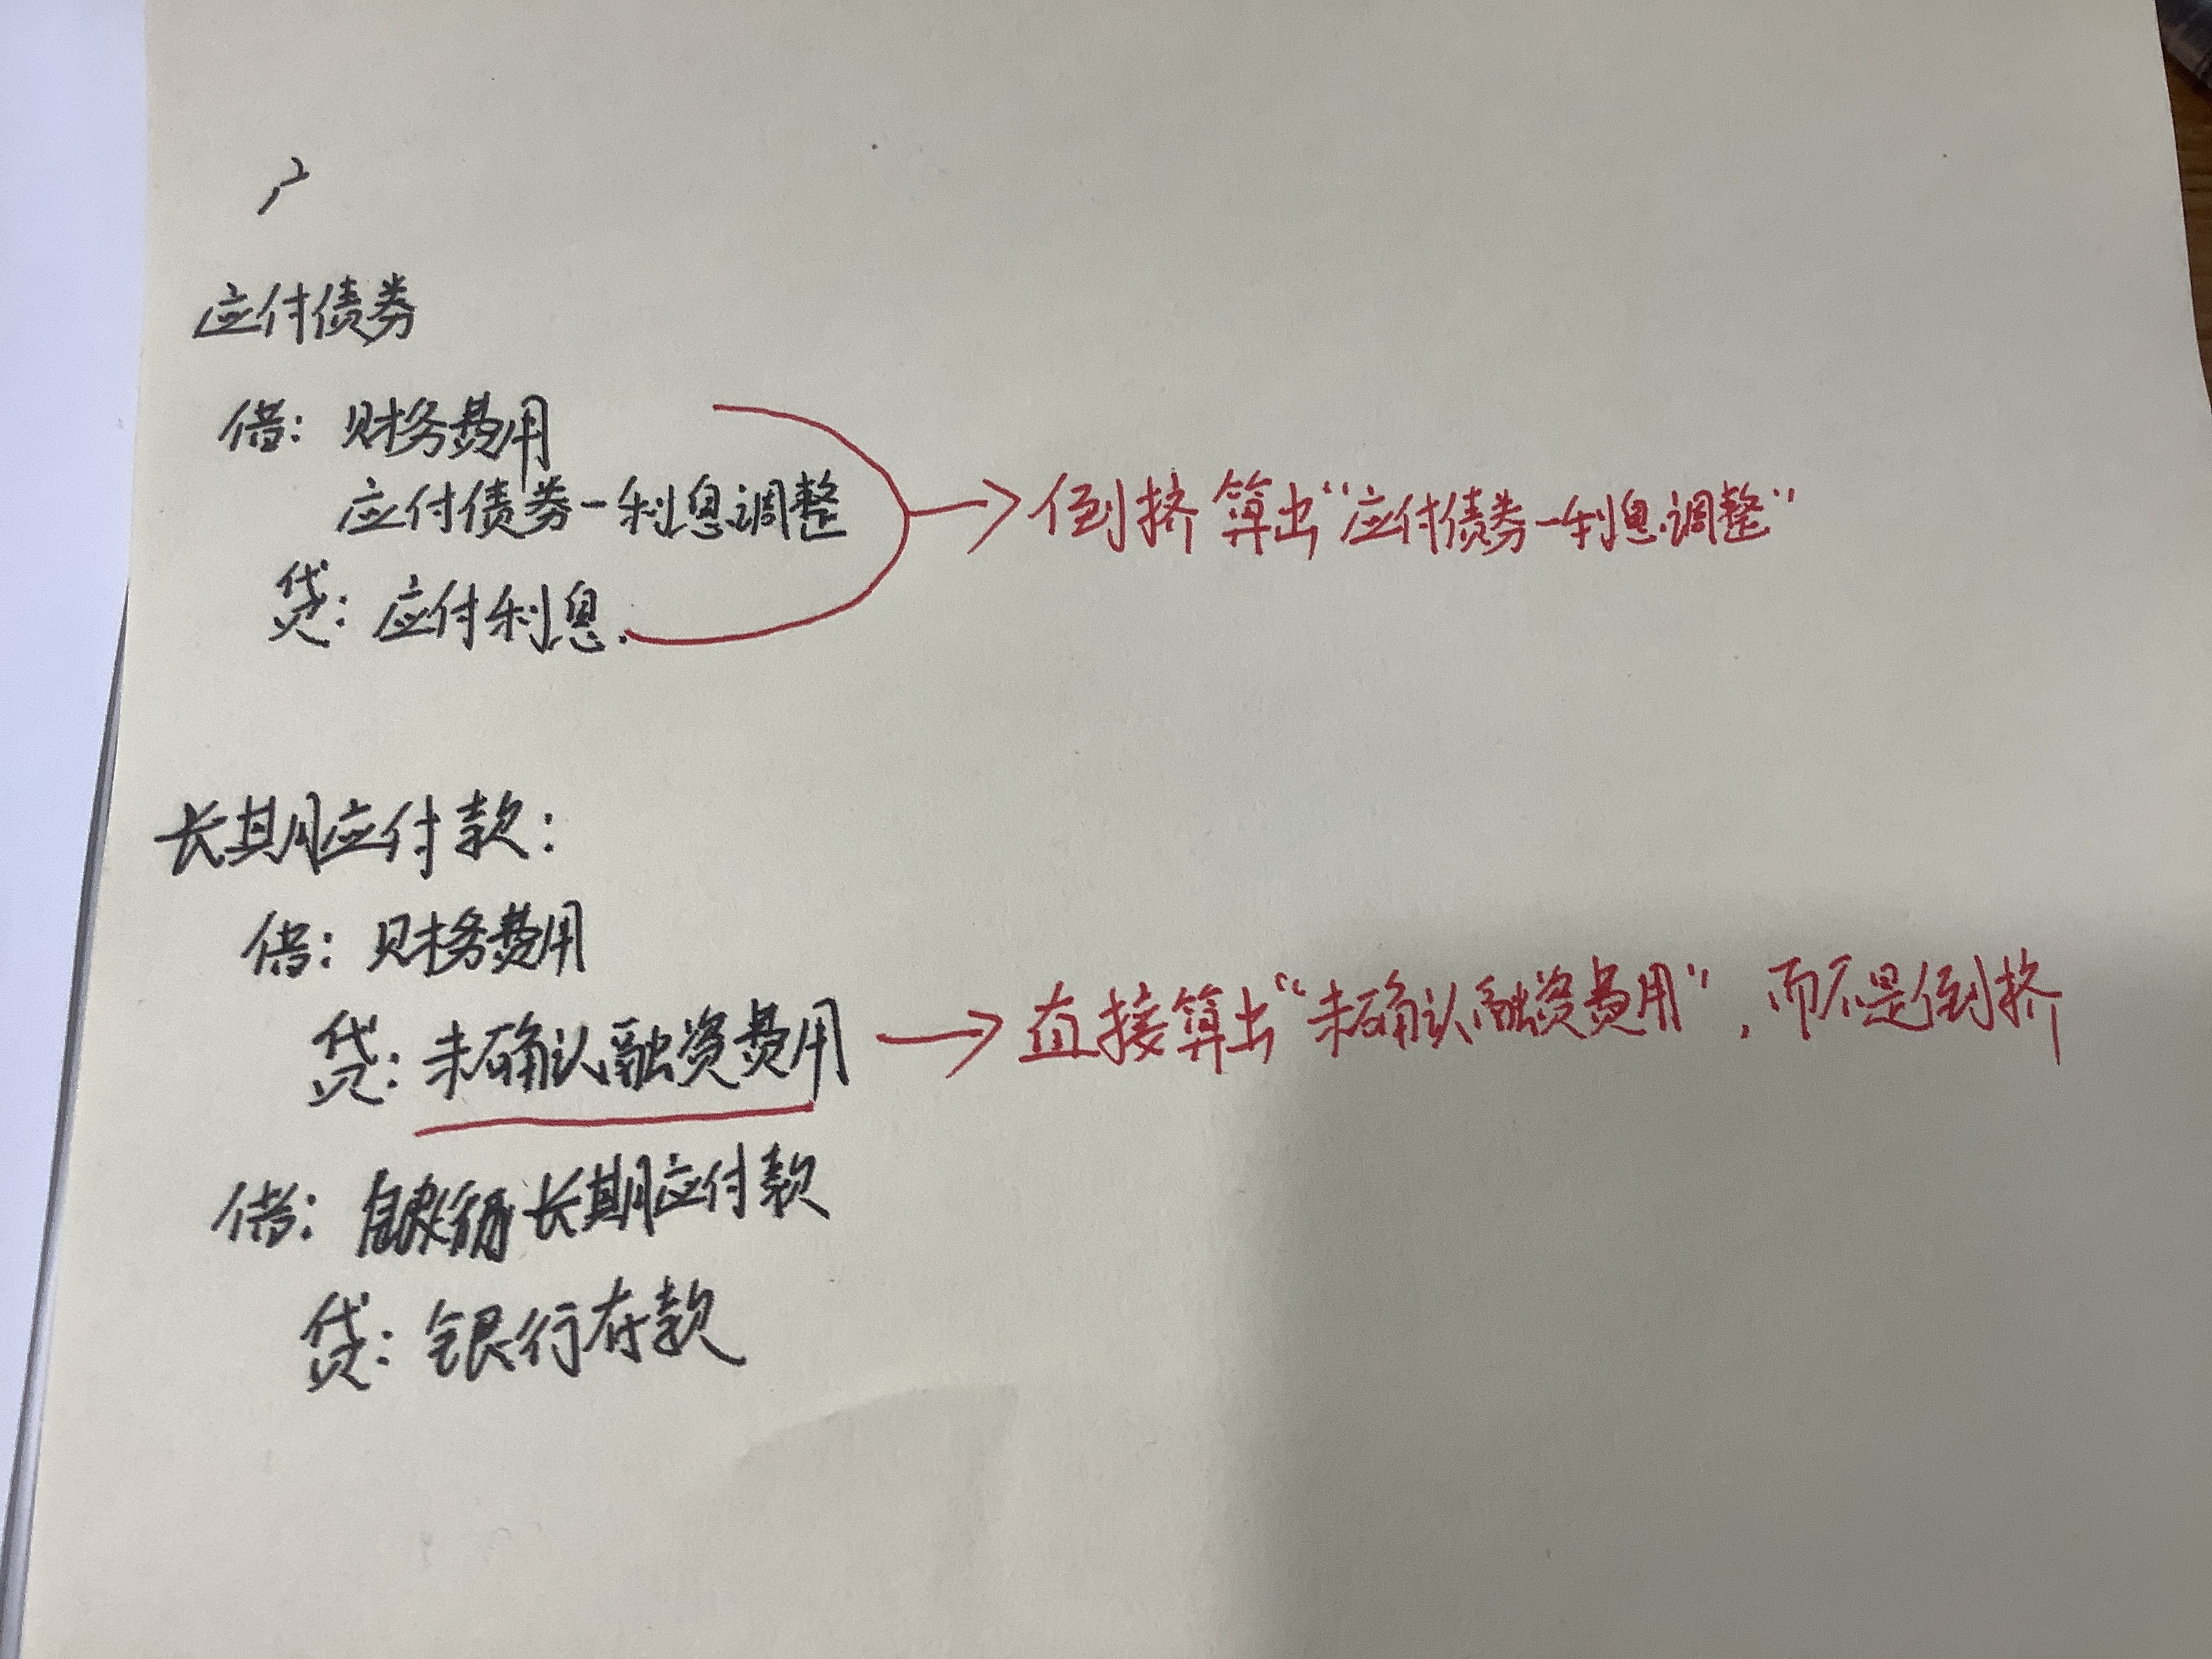 应付债券
借：财务费用
应付债券－利息调整
贷：应付利息.
→倒挤算出“应付债券－利息调整”
长期应付款：
借：财务费用
贷：未确认融资费用
→直接算出“未确认融资费用”，而不是倒挤
借：长期应付款
贷：银行存款